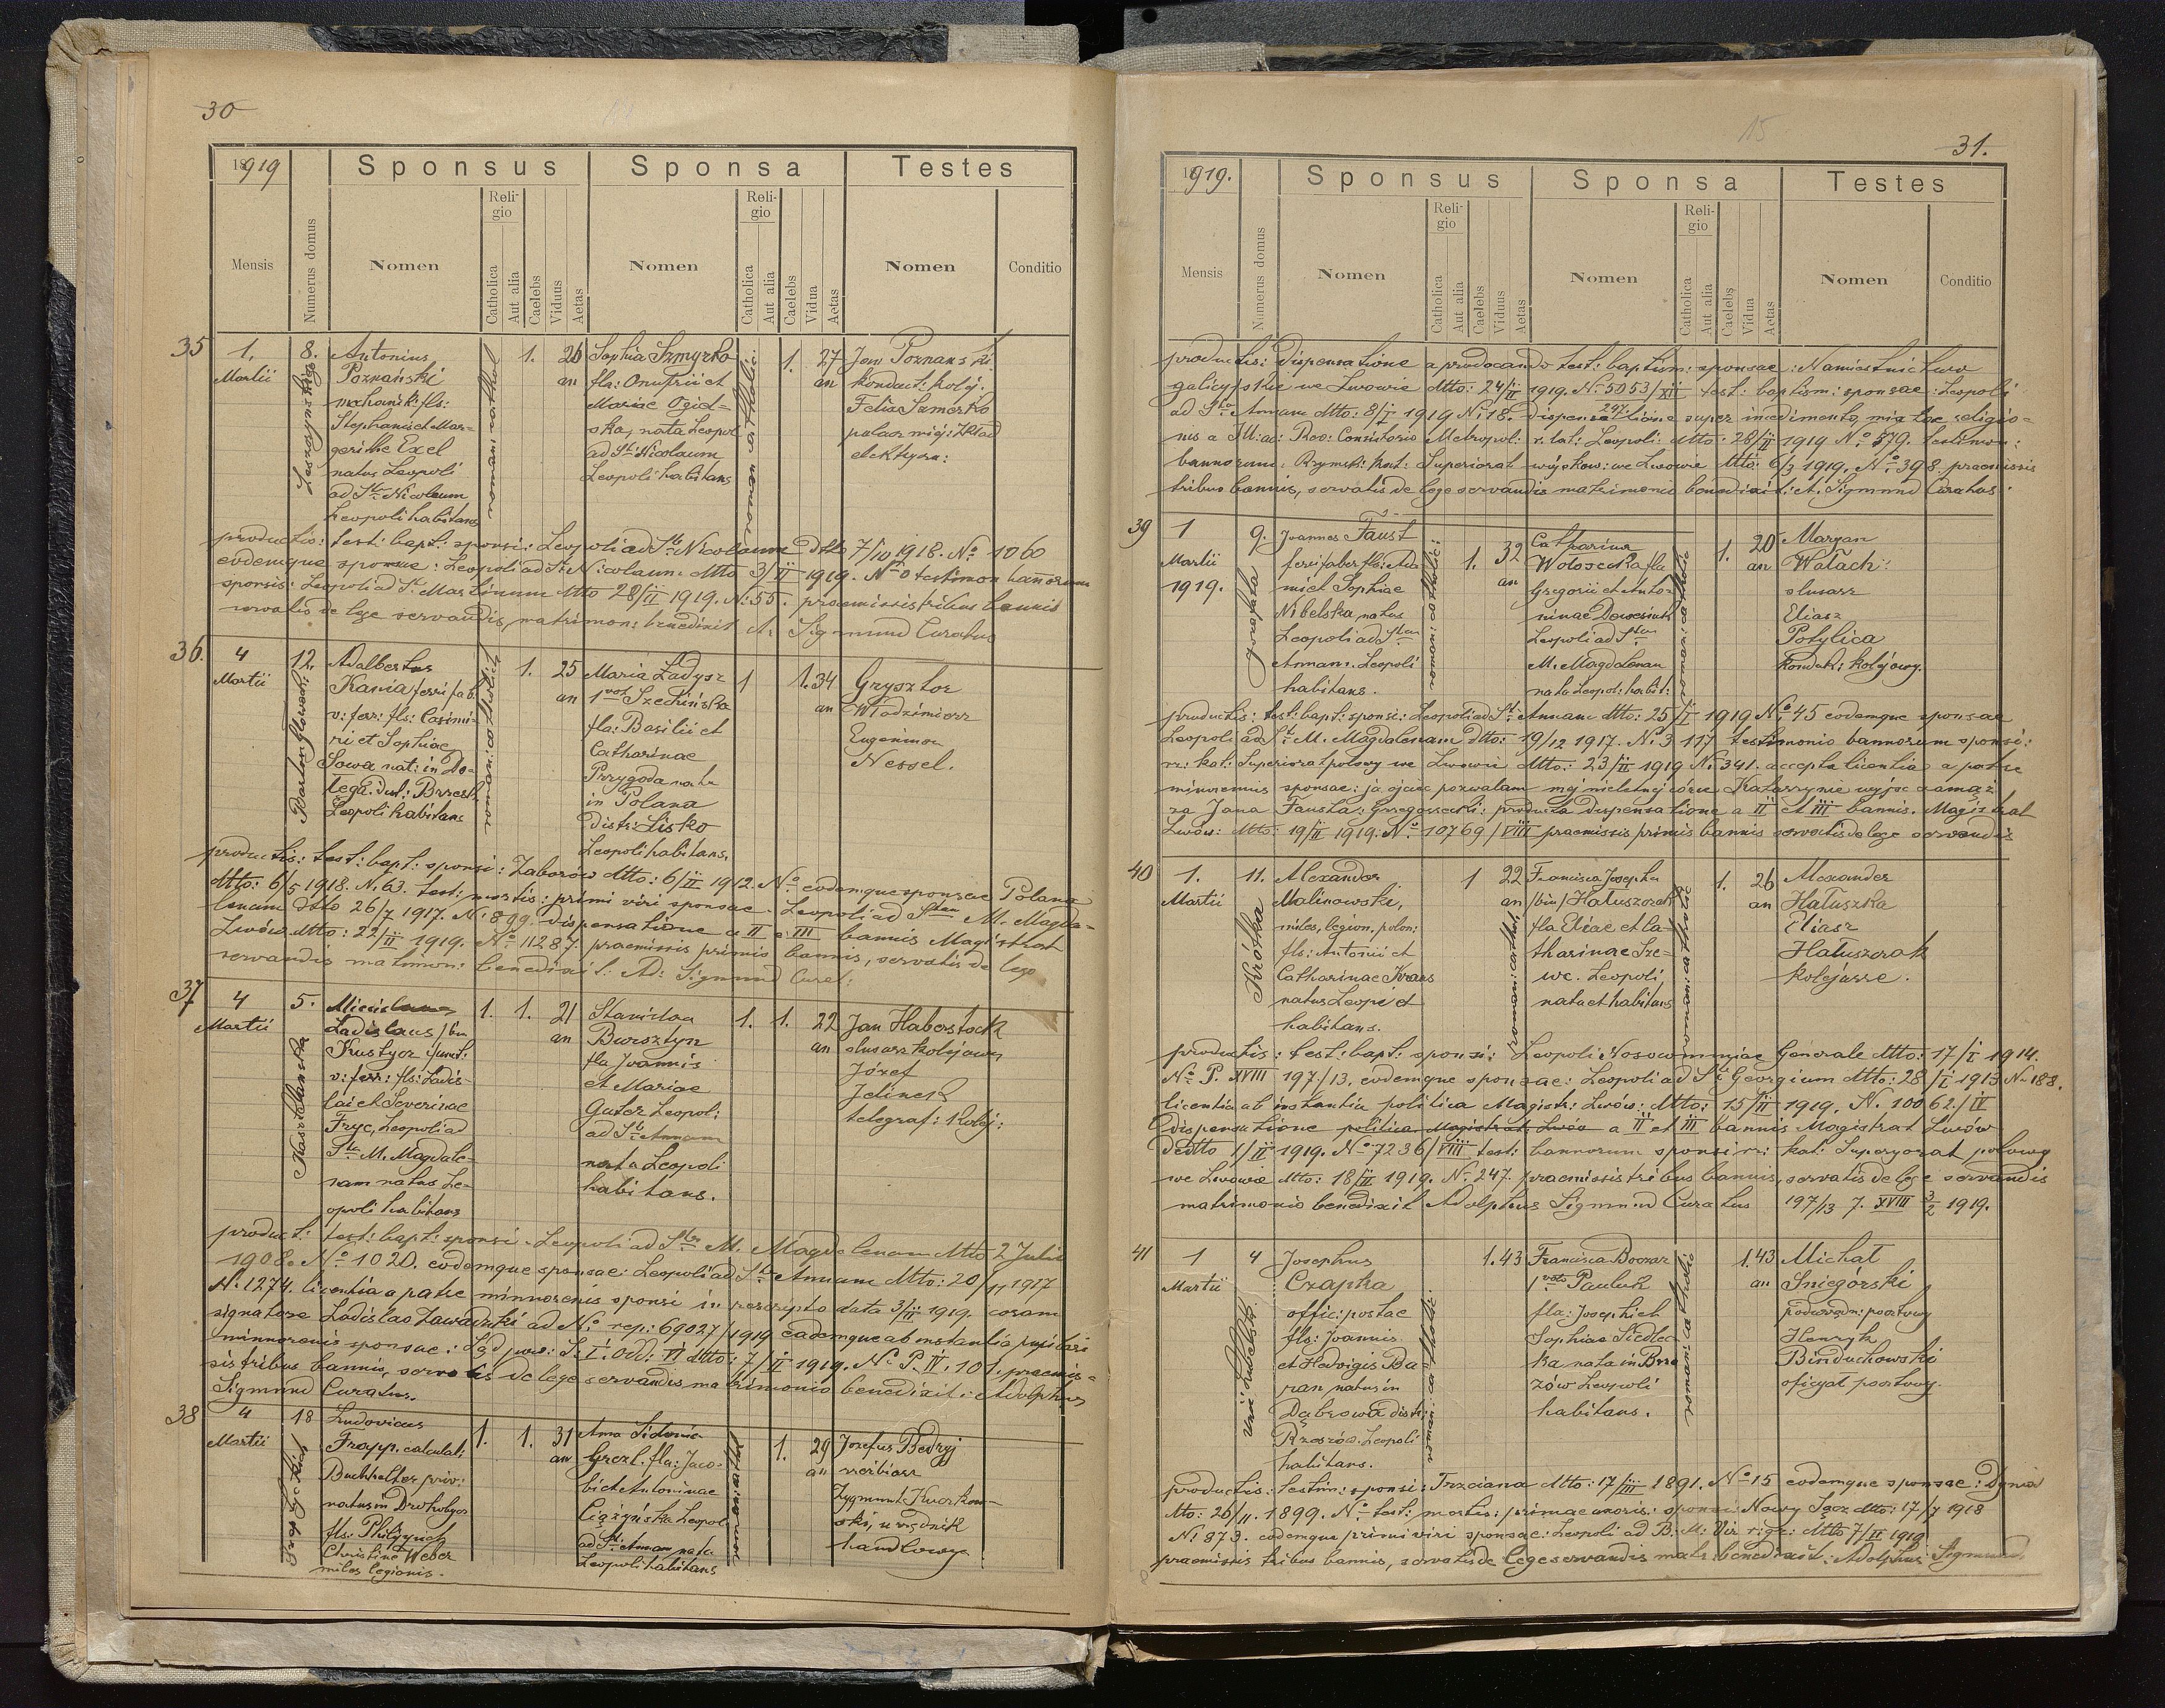 30
1919
Sponsus
Sponsa
Testes
Mensis
Numerus domus
Nomen
Religio
Catholica
Aut alia
Caelebs
Viduus
Aetas
Nomen
Religio
Catholica
Aut alia
Caelebs
Vidua
Aetas
Nomen
Conditio
35
1.
Martii
8.
Antonius
Poznański
mechanik: fls:
Stephani et Mar-
garithe Exel
natus Leopoli
ad Stum Nicolaum
Leopoli habitans
romano cathol:
1.
26
an
Sophia Szmyrko
fla: Onufrii et
Mariae Ogid-
ska, nata Leopol
ad St Nicolaum
Leopoli habitans
romano catholic:
1.
27
an
Jan Poznański
konduct: kolej.
Felia Samerko
palacz miej: Zkład
elektrycz:
productis: test: bapt: sponsi: Leopoli ad St Nicolaum Dtto 7/IV 1918. No 1060
eodemque sponsae: Leopoli ad St Nicolaum Dtto 3/II 1919. No 0 testimon bannorum
sponsis: Leopoli ad St Martinum Dtto 28/II 1919. N: 55. praemissis tribus bannis
servatis de lege servandis, matrimon: benedixit A: Sigmund Curatus
36.
4
Martii
12.
Adalbertus
Kania ferri fab.
v: ferr: fls: Casimi-
ri et Sophiae
Sowa nat: in Do-
łęga. dist: Brzesk
Leopoli habitans
roman: catholic:
1.
25
an
Maria Ładysz
1 vot Szechińska
fla: Basilii et
Catharinae
Przygoda nata
in Polana
Distr: Lisko
Leopoli habitans.
1
1.
34
an
Grysztor
Włodzimierz
Eugenius
Nessel.
productis: test: bapt: sponsi: Zaborów Dtto: 6/II 1912. No eodemque sponsae Polana
Dtto: 6/5 1918. N. 63. test: mortis: primi viri sponsae: Leopoli ad Stam M. Magda-
lenam Dtto 26/7 1917. N: 899. dispensatione a II e III bannis Magistrat
Lwów Dtto: 22/II 1919. No 11287. praemissis primis bannis, servatis de lege
servandis matrimon: benedixit: Ad: Sigmund Curat:
37
4
Martii
5.
Ladislaus /bin
v: ferr: fls: Ladis-
lai et Severinae
Fryc, Leopoli ad
Sta M. Magdale-
nam natus Le-
opoli habitans
1.
1.
21
an
Stanislaa
Bursztyn
fla Joannis
et Mariae
Guter Leopol:
ad St Annam
nata Leopoli
habitans.
1.
1.
22
an
Jan Haberstock
slusarz kolejowy
Józef
Jelinek
telegraf: Kolej:
product: test: bapt: sponsi: Leopoli ad Sta M. Magdalenam Dtto 2 Julii
1908. No 1020. eodemque sponsae: Leopoli ad Sta Annam Dtto: 20/11 1917
N: 1274. licentia a patre minnorenis sponsi in rescripto data 3/II 1919. coram
signatore Ladislao Zawadzki ad No rep: 69027/1919 eademque ab instantia pupilari
minnorenis sponsae: Sąd pow: S: I. Odd: VI Dtto: 7/II 1919. No P. IV. 101. praemis-
sis tribus bannis, servatis de lege servandis matrimonio benedixit: Adolphus
Sigmund Curatus.
38
4
Martii
18
Ludovicus
Fropp. calculat:
Buchhalter priv:
natus in Drohobycz
fls: Philippi et
Christine Weber
miles legionis.
1.
1.
31
an
Anna Sidonia
Grezl. fla: Jaco-
bi et Antoninae
Ciążyńska Leopol
ad St: Annam nata
Leopoli habitans
roman: cathol
1.
29
an
Josefus Bedryj
Zygmunt Kworkow-
ski, urzędnik
handlowy
15
31.
1919.
Sponsus
Sponsa
Testes
Mensis
Numerus domus
Nomen
Religio
Catholica
Aut alia
Caelebs
Viduus
Aetas
Nomen
Religio
Catholica
Aut alia
Caelebs
Vidua
Aetas
Nomen
Conditio
productis: Dispensatione a producando test: baptism: sponsae: Namiestnictwo
galicyjskie we Lwowie Dtto: 24/II 1919. No 5053/XII test: baptism: sponsae: Leopoli
ad Sta Annam Dtto: 8/I 1919 N: 18. dispensatione super impedimento mixtae religio-
nis a Ill: ac: Rev: Consistorio Metropol: r. lat: Leopoli: Dtto: 28/II 1919 No 579. testimon:
bannorum: Rzymsk: kat: Superiorat wojskow: we Lwowie Dtto: 6/3 1919. No 398. praemissis
tribus bannis, servatis de lege servandis matrimonio benedixit: A. Sigmund Curatus.
39
1
Martii
1919.
9.
Jozafata
Joannes Faust
ferri faber fls: Ada
mi et Sophiae
Nibelska natus
Leopoli ad Stam
Annam. Leopoli
habitans.
roman: catholic:
1.
32
an
Catharina
Wołosecka fla
Gregorii et Anto-
ninae
Leopoli ad Stam
M. Magdalenam
nata Leopol: habit:
roman: catholic
1.
20
an
Maryan
Wałach:
slusarz
Eliasz
Potylica
Kondukt: kolejowy.
productis: test: bapt: sponsi: Leopoli ad St: Annam Dtto: 25/I 1919 No 45 eodemque sponsae
Leopoli ad St M. Magdalenam Dtto: 19/12 1917. No 3117 testimonio bannorum sponsi:
rz: kat: Superiorat polowy we Lwowie Dtto: 23/II 1919 N: 341. accepta licentia a patre
minorennis sponsae: ja ojciec pozwalam mej nieletnej córce Katarzynie wyjść zamąż
za Jana Fausta: Grzegorz: producta dispensatione a II et III bannis. Magistrat
Lwów: Dtto: 19/II 1919: No 10769/VIII praemissis primis bannis servatis de lege servandis
40
1.
Martii
11.
Krótka
Alexander
Malinowski,
miles, legion. polon:
fls: Antonii et
Catharinae Kraus
natus Leopoli et
habitans.
roman: cathol,
1
22
an
Francisca Josepha
/bin/ Hałuszczak
fla Eliae et Ca-
tharinae Sze-
we. Leopoli
nata et habitans
roman: catholic
1.
26
an
Alexander
Hałuszka
Eliasz
Hałuszczak
kolejarze.
productis: test: bapt: sponsi: Leopoli Nosocomiae Generale Dtto: 17/I 1914.
No P. XVIII 197/13. eodemque sponsae: Leopoli ad St Georgium Dtto: 28/I 1913 No 188.
licentia ab instantia politica Magistr: Lwów: Dtto: 15/II 1919. N. 10062/IV
Dispensatione politica Magistrat: Lwów a II et III bannis Magistrat Lwów
Dedtto 1/II 1919. No 7236/VIII test: bannorum sponsi rz: kat: Superyorat polowy
we Lwowie Dtto: 18/II 1919. N: 247. praemissis tribus bannis, servatis de lege servandis
matrimonio benedixit Adolphus Sigmund Curatus 197/13 7. XVIII 3/2 1919.
41
1
Martii
4
Josephus
Czapka
offic: postae
fls: Joannis
et Hedvigis Ba-
ran natus in
Dąbrowa distr:
Rzeszów. Leopoli
habitans.
roman: catholic:
1.
43
Francisca Boczar
1 voto Pauluk
fla: Josephi et
Sophiae Siedlec-
ka nata in Brze
zów Leopoli
habitans.
roman: catholic
1.
43
an
Michał
Śniegórski
podurzędn: pocztowy
Henryk
Binduchowski
oficyał pocztowy.
productis: testim: sponsi: Trzciana Dtto: 17/III 1891. No 15 eodemque sponsae: Dynia
Dtto: 26/11. 1899. No test: mortis: primae uxoris: sponsi: Nowy Sącz Dtto: 17/7 1918
N: 873. eodemque primi viri sponsae: Leopoli ad B: M: Vir r: gr: Dtto 7/II 1919
praemissis tribus bannis, servatis de lege servandis matr: benedixit: Adolphus Sigmund